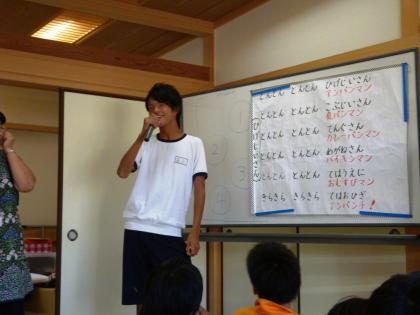 とんとん とんとん ひげじいさん
アンパンマン
とんとん とんとん こぶじいさん
食パンマン
とんとん とんとん てんぐさん
カレーパンマン
とんとん とんとん めがねさん
バイキンマン
とんとん とんとん てはうえに
おむすびマン
きらきら きらきら てはおひざ
アンパンチ!
ひげじいさん
①
②
③
④